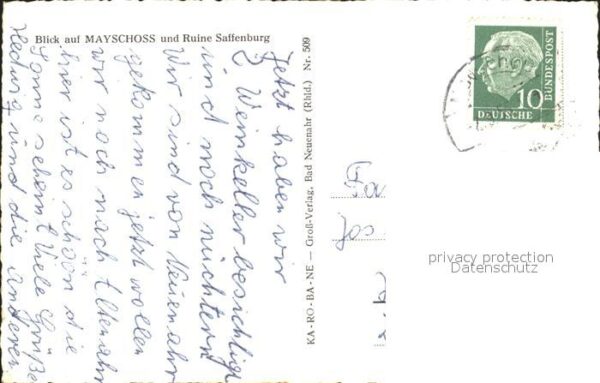 Blick auf MAYSCHOSS und Ruine Saffenburg
Jetzt haben wir
2 Weinkeller besichtigt
und noch nüchtern
Wir sind von Neuenahr
gekommen jetzt wollen
wir noch nach Altenahr
hier ist es schön die
Sonne scheint Viele Grüße
Hedwig und die anderen
KA-RO-BA-NE — Groß-Verlag, Bad Neuenahr (Rhld.) Nr. 509
10
DEUTSCHE
BUNDESPOST
Fa
Jos
privacy protection
Datenschutz